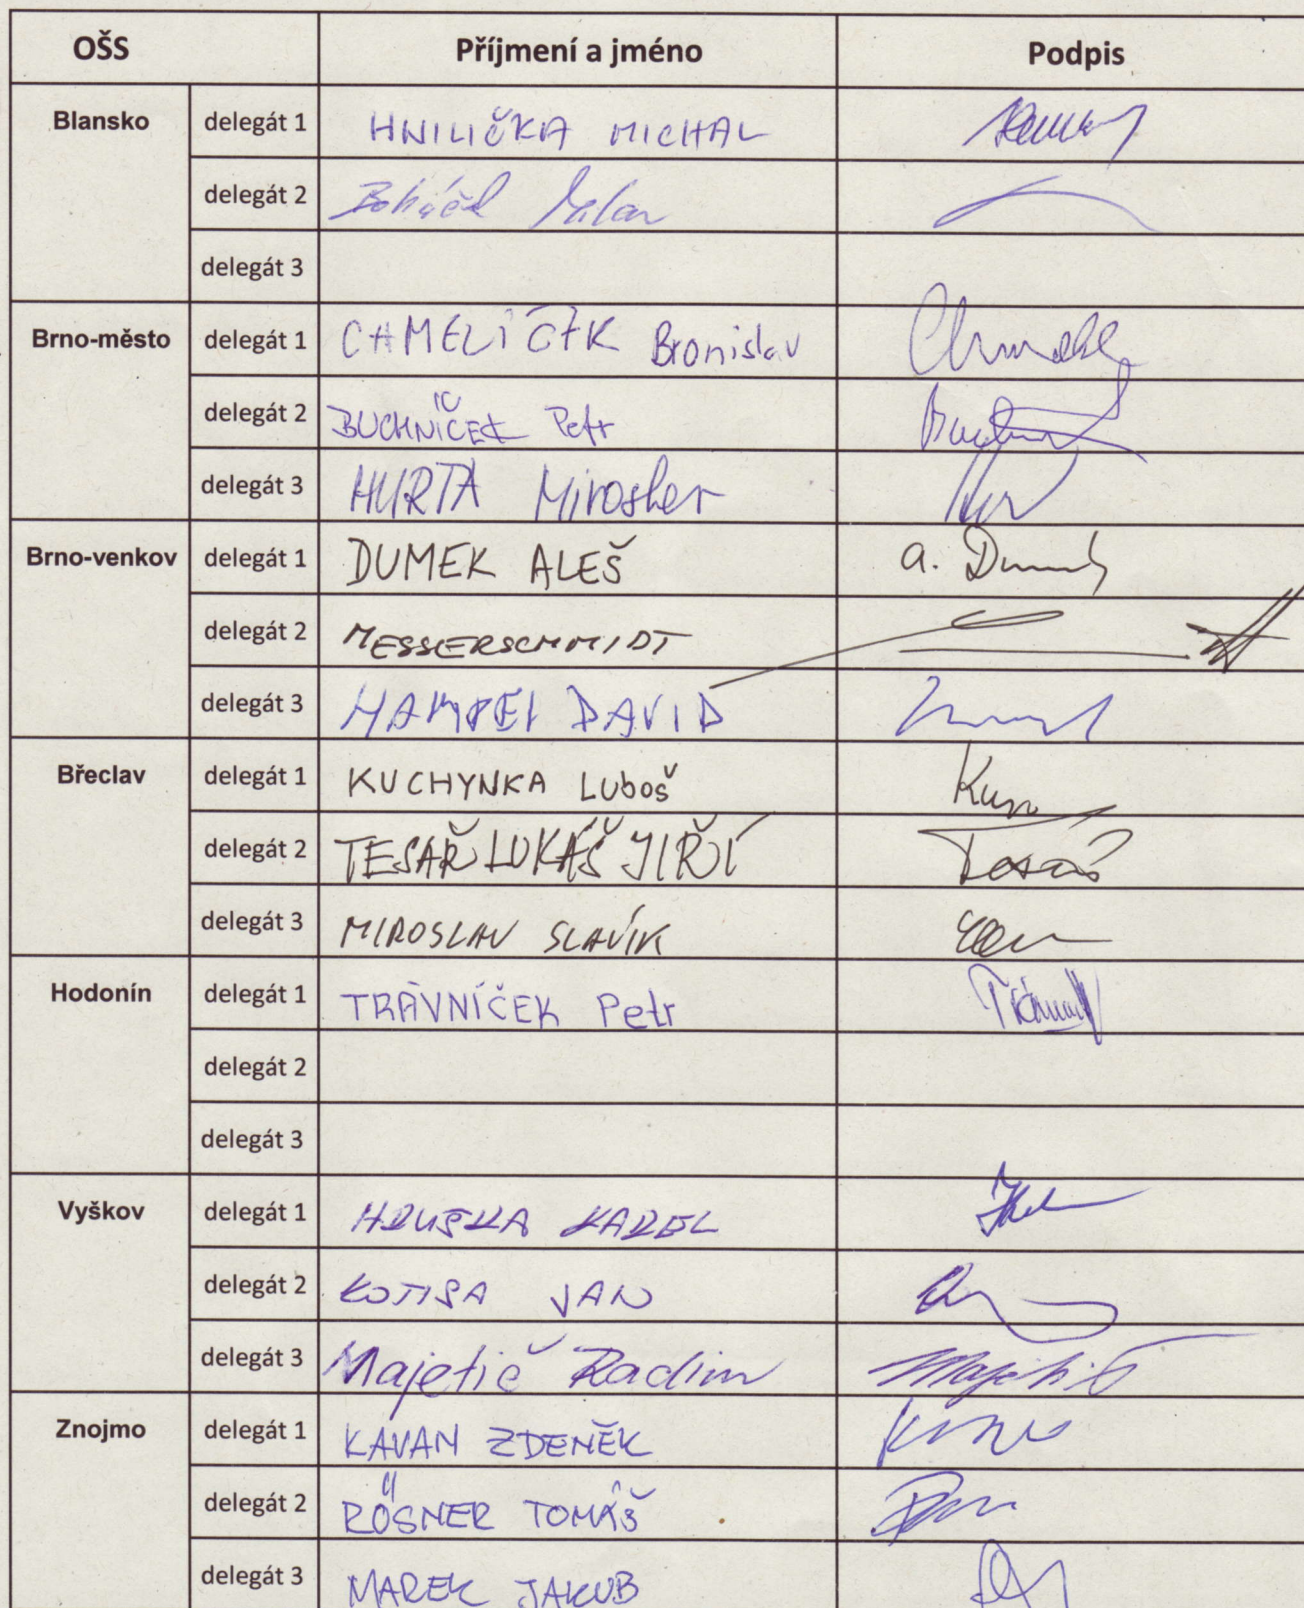 OŠS Příjmení a jméno Podpis
Blansko delegát 1 HNILIČKA MICHAL
delegát 2 Boháček Milan
delegát 3
Brno-město delegát 1 CHMELÍČEK Bronislav
delegát 2 BUCHNÍČEK Petr
delegát 3 HURTA Miroslav
Brno-venkov delegát 1 DUMEK ALEŠ a. Dumek
delegát 2 MESSERSCHMIDT
delegát 3 HAMPEL DAVID
Břeclav delegát 1 KUCHYNKA Luboš
delegát 2 TESAŘ LUKÁŠ JIŘÍ Tesař
delegát 3 MIROSLAV SLAVÍK
Hodonín delegát 1 TRÁVNÍČEK Petr
delegát 2
delegát 3
Vyškov delegát 1 HRUŠKA KAREL
delegát 2 KOTISA JAN
delegát 3 Majetič Radim Majetič
Znojmo delegát 1 KAVAN ZDENĚK
delegát 2 RÖSNER TOMÁŠ
delegát 3 MAREK JAKUB